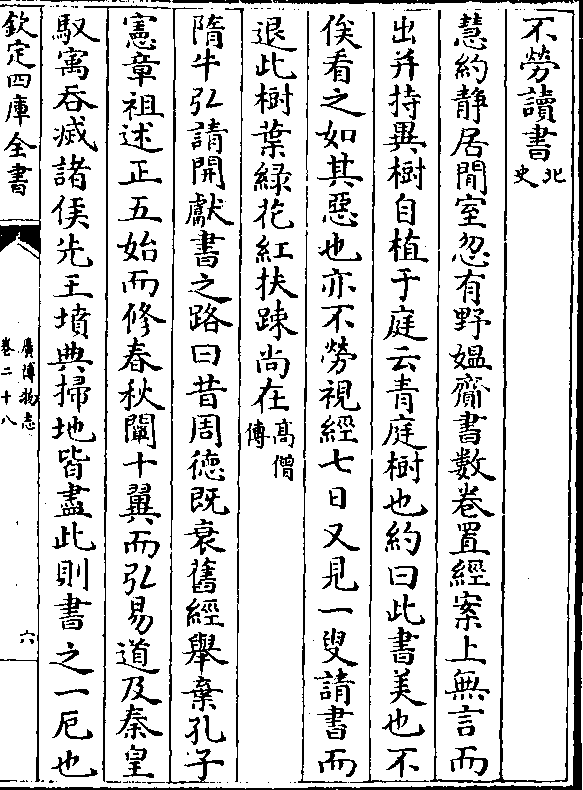 不勞讀書北史
慧約静居閒室忽有野媼齎書數卷置經案上無言而
出并持異樹自植于庭云青庭樹也約曰此書美也不
俟看之如其惡也亦不勞視經七日又見一叟請書而
退此樹葉緑花紅扶踈尚在高僧傳
隋牛弘請開獻書之路曰昔周德既衰舊經舉棄孔子
憲章祖述正五始而修春秋闡十翼而弘易道及秦皇
馭㝢吞滅諸侯先王墳典掃地皆盡此則書之一厄也
欽定四庫全書
廣博物志
卷二十八
六